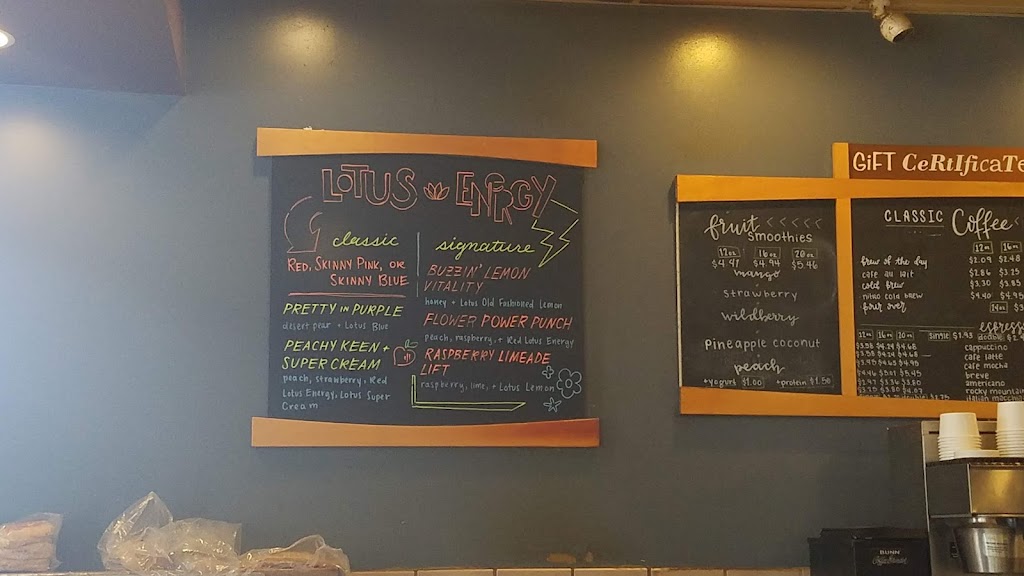 LOTUS ENERGY
classic
RED, SKINNY PINK, OR
SKINNY BLUE
PRETTY IN PURPLE
desert pear + Lotus Blue
PEACHY KEEN +
SUPER CREAM
peach, strawberry, Red
Lotus Energy, Lotus Super
Cream
signature
BUZZIN' LEMON
VITALITY
honey + Lotus Old Fashioned Lemon
FLOWER POWER PUNCH
peach, raspberry, + Red Lotus Energy
RASPBERRY LIMEADE
LIFT
raspberry, lime, + Lotus Lemon
fruit
smoothies
12oz 16oz 20oz
$4.47 $4.94 $5.46
mango
strawberry
wildberry
Pineapple coconut
peach
+yogurt $1.00 +protein $1.50
GIFT CeRtIficaTe
CLASSIC Coffee
12oz 16oz
brew of the day $2.09 $2.48
cafe au lait $2.86 $3.25
cold brew $3.30 $3.85
nitro cold brew $4.40 $4.95
pour over
espress
12oz 16oz 20oz single $1.95 double
cappuccino
cafe latte
cafe mocha
breve
americano
rocky mountain
italian macchia
BUNN